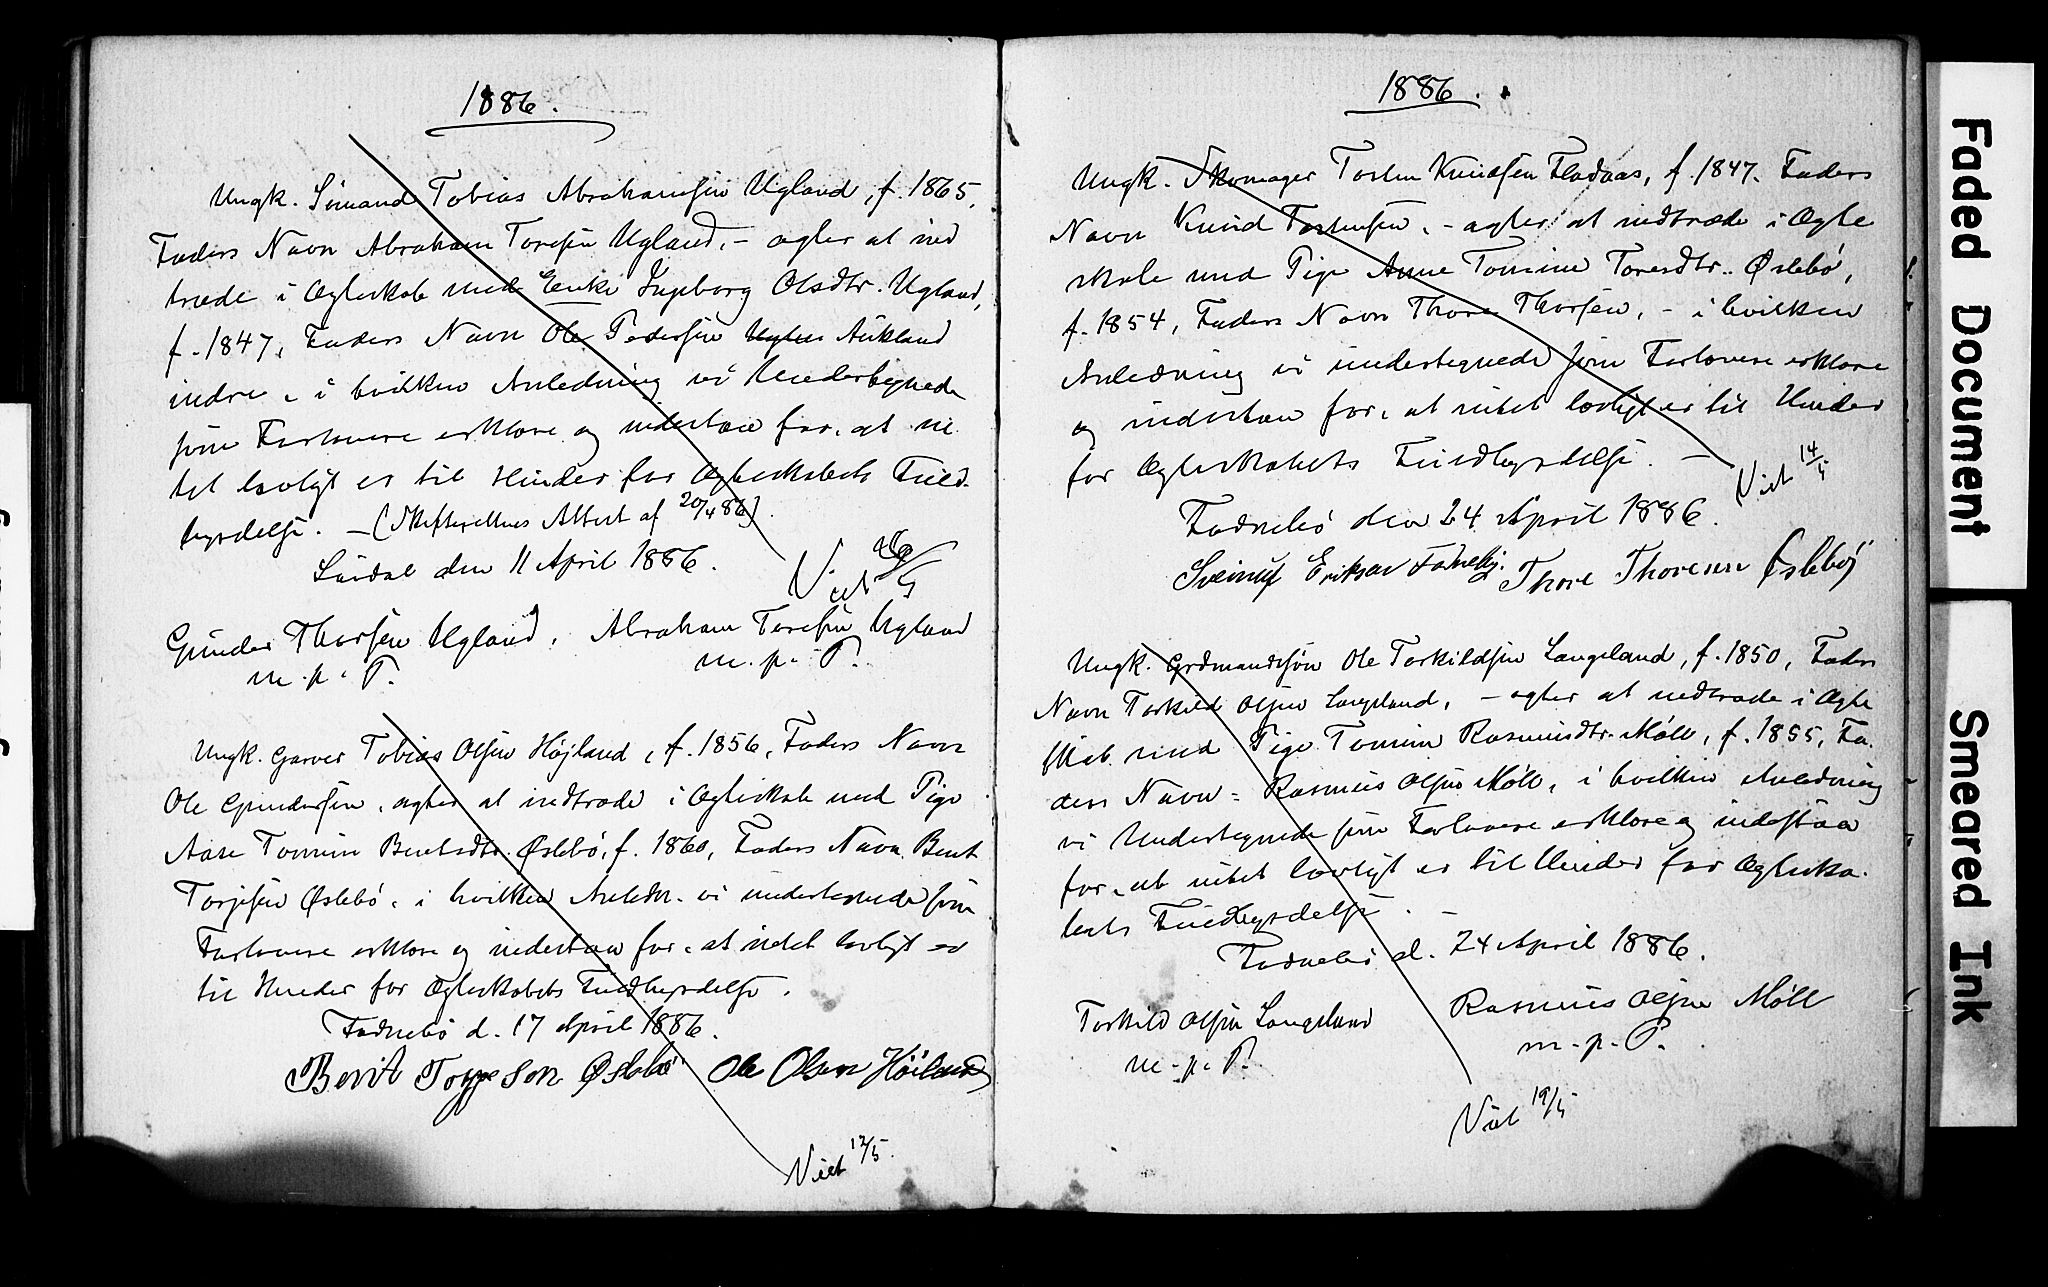 1886.
Ungk. Sömand Tobias Abrahamsen Ugland, f. 1865,
Faders Navn Abraham Toresen Ugland, - agter at ind
træde i Ægteskab med Enke Ingeborg Olsdtr. Ugland,
f. 1847, Faders Navn Ole Pedersen Aukland
indre, i hvilken Anledning vi Undertegnede
som Forlovere erklære og indestaa for, at in
tet lovligt er til Hinder for Ægteskabets Fuld
byrdelse. - (Skifterettens Attest af 20/4 86).
Laudal den 11 April 1886.
Viet 26/5
Gunder Thorsen Ugland, Abraham Toresen Ugland
m. p. P. m. p. P.
Ungk. Garver Tobias Olsen Höjland, f. 1856, Faders Navn
Ole Gundersen, agter at indtræde i Ægteskab med Pige
Aase Tomine Bentsdtr. Øslebö, f. 1860, Faders Navn Bent
Torjesen Øslebö, i hvilken Anledn. vi undertegnede som
Forlovere erklære og indestaa for, at intet lovligt er
til Hinder for Ægteskabets Fuldbyrdelse.
Fadnebö d. 17 April 1886.
Berit Torjeson Øslebö Ole Olsen Höiland
Viet 12/5.
1886.
Ungk. Skomager Torsten Knudsen Flodaas, f. 1847. Faders
Navn Knud Torstensen, - agter at indtræde i Ægte
skab med Pige Anne Tomine Toresdtr. Øslebö,
f. 1854, Faders Navn Thore Thorsen, - i hvilken
Anledning vi undertegnede som Forlovere erklære
og indestaa for, at intet lovligt er til Hinder
for Ægteskabets Fuldbyrdelse. -
Viet 14/5
Fadnebö den 24 April 1886.
Eriksen Thore Thoresen Øslebö
Ungk. Grdmandssön Ole Torkildsen Langeland, f. 1850, Faders
Navn Torkild Olsen Langeland, - agter at indtræde i Ægte
skab med Pige Tomine Rasmusdtr. Möll, f. 1855, Fa-
ders Navn = Rasmus Olsen Möll, i hvilken Anledning
vi Undertegnede som Forlovere erklære og indestaa
for, at intet lovligt er til Hinder for Ægteska-
bets Fuldbyrdelse. -
Fadnebö d. 24 April 1886.
Torkild Olsen Langeland Rasmus Olsen Möll
m. p. P. m. p. P.
Viet 19/5
Faded Document
Smeared Ink